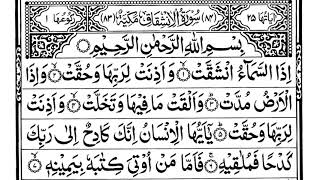 اٰیَاتُهَا ٢٥ (٨٤) سُوْرَةُ الْاِنْشِقَاقِ مَكِّیَّةٌ (٨٣) رُكُوْعُهَا ١
بِسْمِ اللّٰهِ الرَّحْمٰنِ الرَّحِیْمِ
اِذَا السَّمَآءُ انْشَقَّتْ ۙ﴿١﴾ وَ اَذِنَتْ لِرَبِّهَا وَ حُقَّتْ ۙ﴿٢﴾ وَ اِذَا
الْاَرْضُ مُدَّتْ ۙ﴿٣﴾ وَ اَلْقَتْ مَا فِیْهَا وَ تَخَلَّتْ ۙ﴿٤﴾ وَ اَذِنَتْ
لِرَبِّهَا وَ حُقَّتْ ؕ﴿٥﴾ یٰۤاَیُّهَا الْاِنْسَانُ اِنَّكَ كَادِحٌ اِلٰی رَبِّكَ
كَدْحًا فَمُلٰقِیْهِ ۚ﴿٦﴾ فَاَمَّا مَنْ اُوْتِیَ كِتٰبَهٗ بِیَمِیْنِهٖ ۙ﴿٧﴾